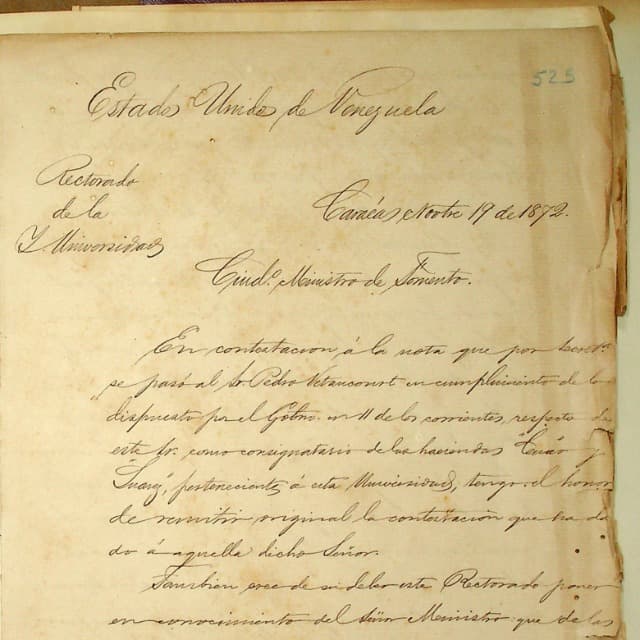 525
Estados Unidos de Venezuela
Rectorado
de la
I. Universidad
Carácas Novbre 19 de 1872.
Ciudº Ministro de Fomento.
En contestacion á la nota que por
se pasó al Sr. Pedro Vetancourt en cumplimiento de lo
dispuesto por el Gobno. en 11 de los corrientes, respecto de
este Sr. como consignatario de las haciendas y
pertenecientes á esta Universidad, tengo el honor
de remitir original la contestacion que ha da
do á aquella dicho Señor.
Tambien cree de su deber este Rectorado poner
en conocimiento del Señor Ministro que de las